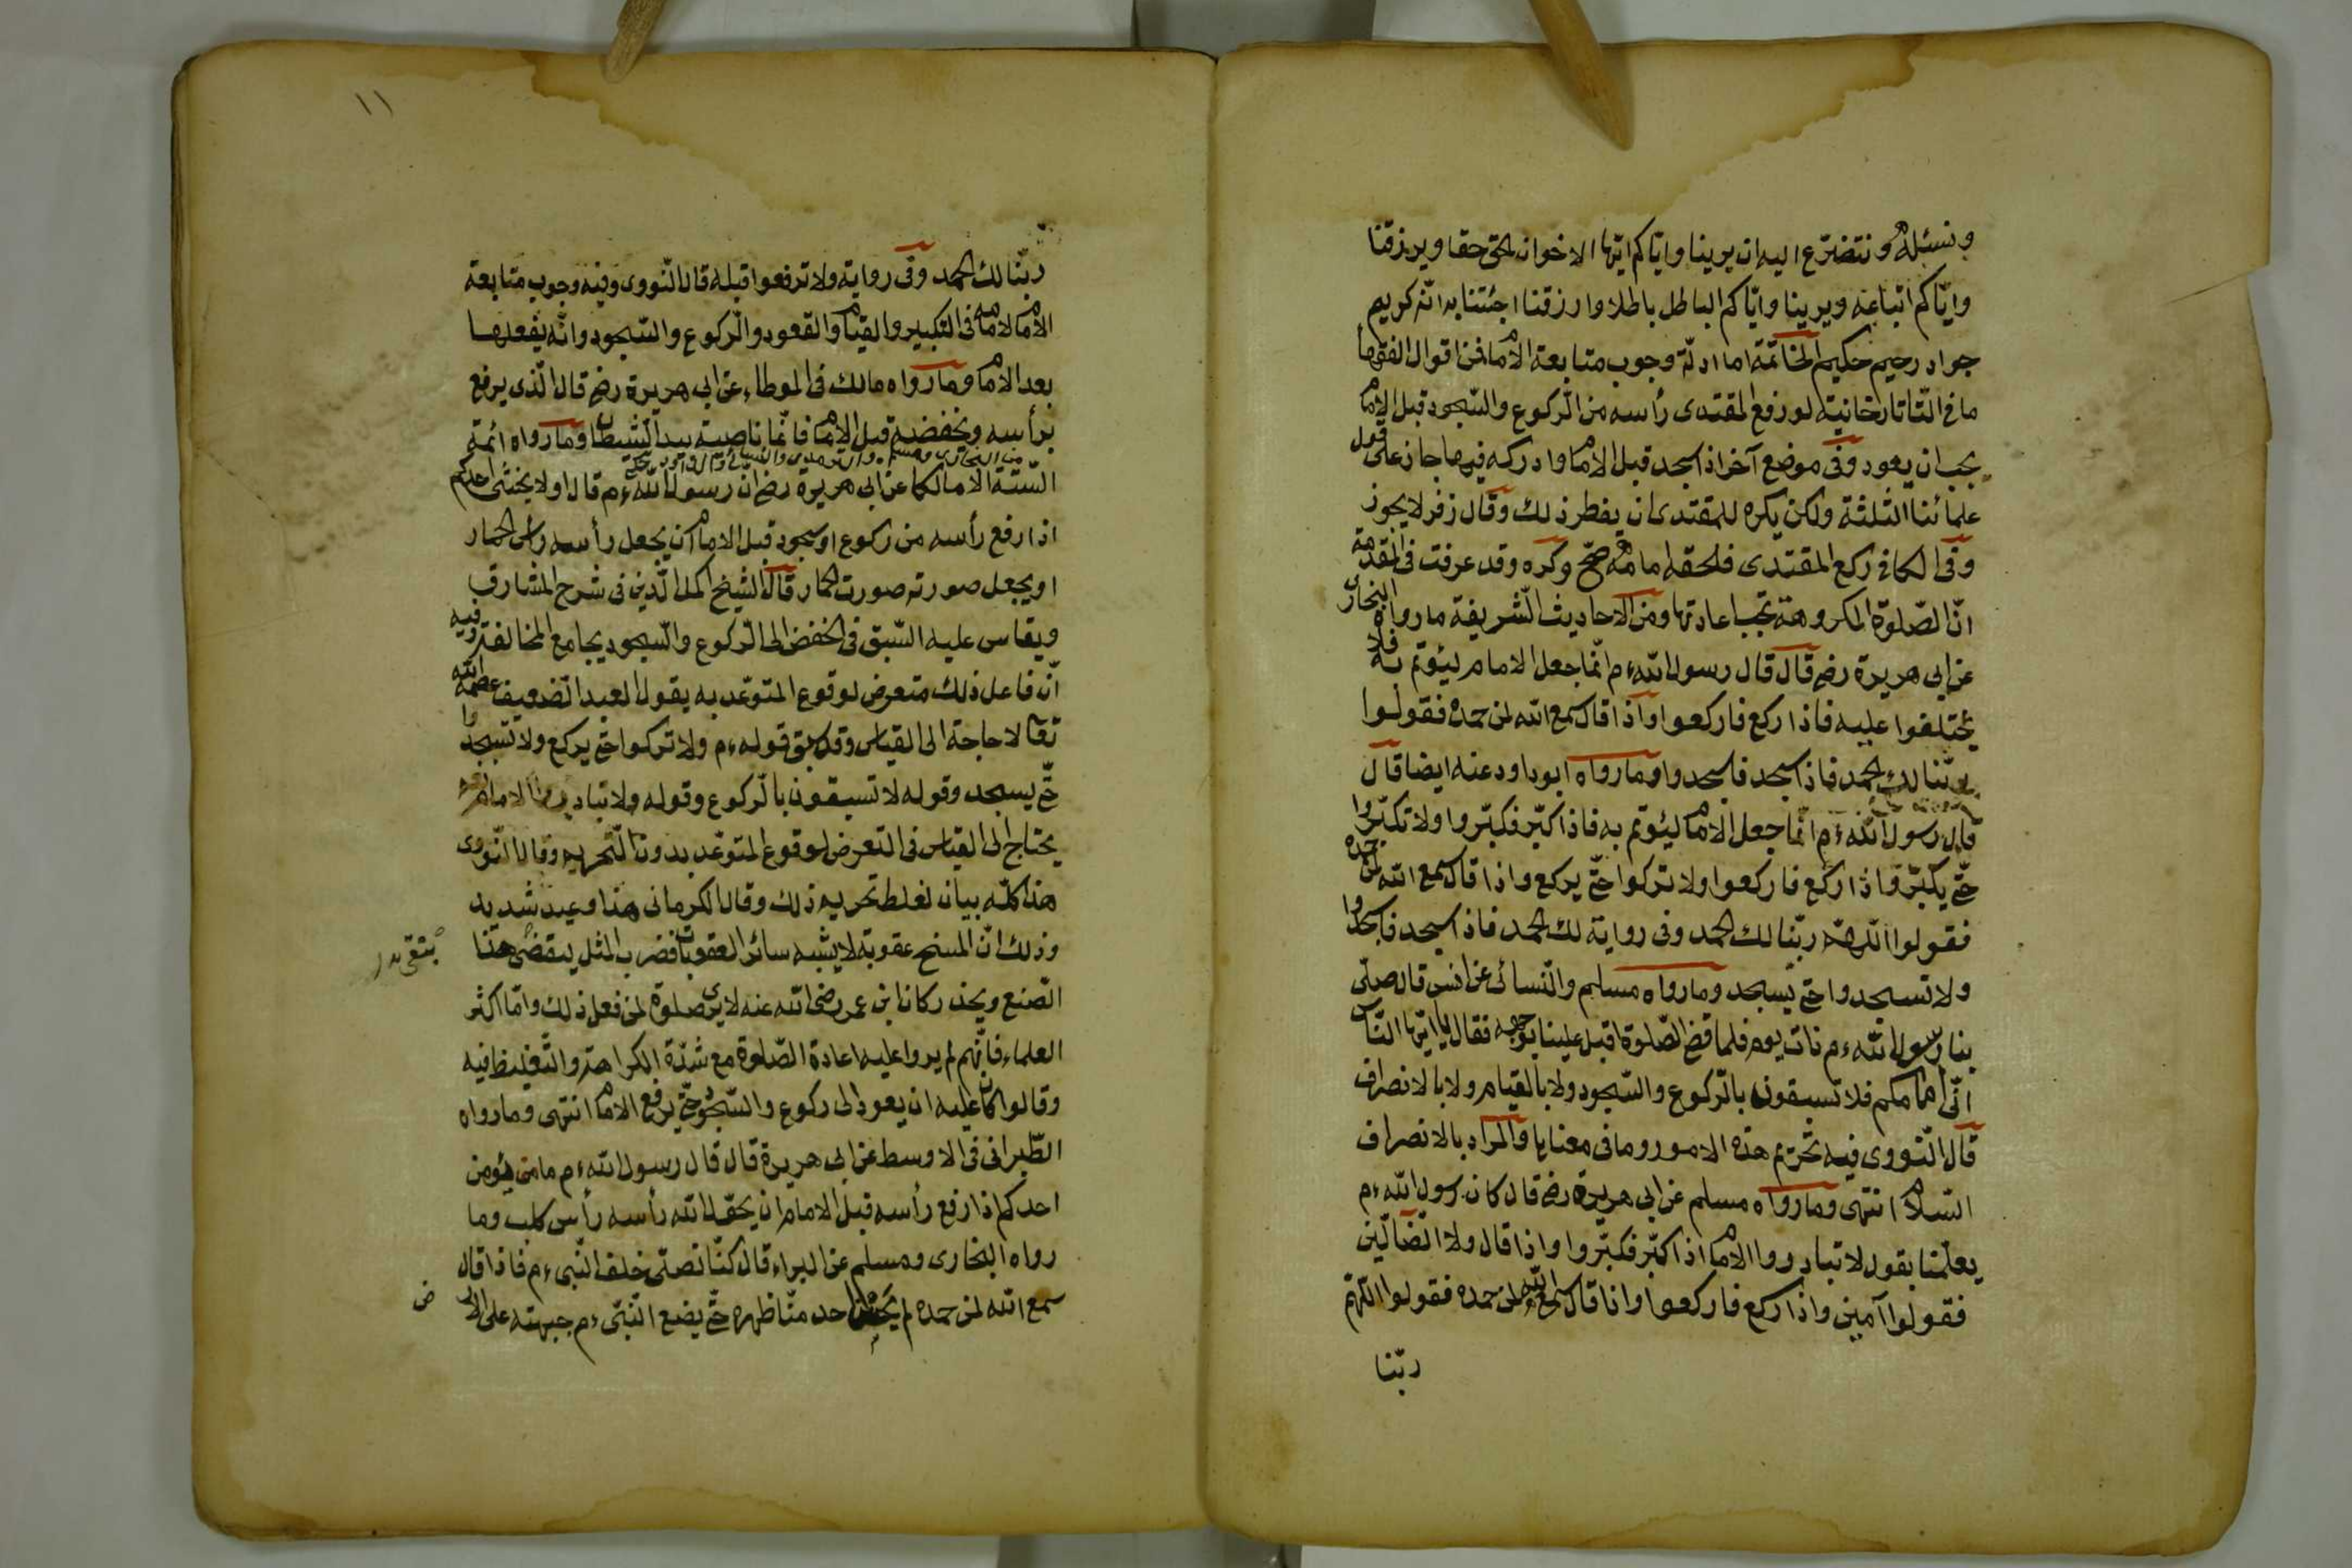 ونسئله ونتضرّع اليه ان يرينا وايّاكم ايّها الاخوان الحقّ حقا ويرزقنا
وايّاكم اتباعه ويرينا وايّاكم الباطل باطلا وارزقنا اجتنابه انّه كريم
جواد رحيم حكيم الخاتمة اما ادلّة وجوب متابعة الامام فمن اقوال الفقها
ما فى التّاتارخانيّة لو رفع المقتدى رأسه من الرّكوع والسّجود قبل الامام
يجب ان يعود وفى موضع آخر اذا سجد قبل الامام وادركه فيها جاز على قول
علمائنا الثلثة ولكن يكره للمقتدى ان يفطر ذلك وقال زفر لا يجوز
وفى الكافى ركع المقتدى فلحقه امامه صحّ وكره وقد عرفت فى المقدمة
انّ الصّلوة المكروهة تجب اعادتها ومن الاحاديث الشّريفة ما رواه البخارى
عن ابى هريرة رضه قال قال رسول الله ءم انّما جعل الامام ليؤتم به فلا
يختلفوا عليه فاذا ركع فاركعوا واذا قال سمع الله لمن حمده فقولوا
ربّنا لك الحمد فاذا سجد فاسجدوا وما رواه ابو داود عنه ايضا قال
قال رسول الله ءم انّما جعل الامام ليئوتم به فاذا كبّر فكبّروا ولا تكبّروا
حتّى يكبّر فاذا ركع فاركعوا ولا تركعوا حتّى يركع واذا قال سمع الله لمن حمده
فقولوا اللّهمّ ربّنا لك الحمد وفى رواية لك الحمد فاذا سجد فاسجدوا
ولا تسجدوا حتّى يسجد وما رواه مسلم والنّسائى عن انس قال صلّى
بنا رسول الله ءم ذات يوم فلما قضى الصّلوة اقبل علينا بوجهه فقال يا ايّها النّاس
انّى امامكم فلا تسبقون بالرّكوع والسّجود ولا بالقيام ولا بالانصراف
قال النّووى فيه تحريم هذه الامور وما فى معناها والمراد بالانصراف
السّلام انتهى وما رواه مسلم عن ابى هريرة رضه قال كان رسول الله ءم
يعلّمنا بقول لا تبادروا الامام اذا كبّر فكبّروا واذا قال ولا الضّالّين
فقولوا آمين واذا ركع فاركعوا واذا قال سمع الله لمن حمده فقولوا اللّهمّ
ربّنا
١١
ربّنا لك الحمد وفى رواية ولا ترفعوا قبله قال النّووى وفيه وجوب متابعة
الامام لامامه فى التكبير والقيام والقعود والرّكوع والسّجود وانّه يفعلها
بعد الامام وما رواه مالك فى الموطاء عن ابى هريرة رضه قال الّذى يرفع
برأسه ويخفضه قبل الامام فانّما ناصيته بيد الشيطان وما رواه ائمة
من البخارى ومسلم والترمذى والنسائى
السّتّة الا مالكا عن ابى هريرة رضه انّ رسول الله ءم قال اولا يخشى احدكم
اذا رفع رأسه من ركوع او سجود قبل الامام ان يجعل رأسه رأس الحمار
او يجعل صورته صورت الحمار قال الشيخ اكمل الدّين فى شرح المشارق
ويقاس عليه السّبق فى الخفض الى الرّكوع والسّجود بجامع المخالفة وفيه
انّ فاعل ذلك متعرض لوقوع المتوعّد به يقول العبد الضّعيف عصمه الله
تعا لا حاجة الى القياس وقد سبق قوله ءم ولا تركعوا حتّى يركع ولا تسجدوا
حتّى يسجد وقوله لا تسبقون بالرّكوع وقوله ولا تبادروا الامام
يحتاج الى القياس فى التعرض لوقوع المتوعّد بدون التّحريم وقال النّووى
هذا كلّه بيان لغلظ تحريم ذلك وقال الكرمانى هذا وعيد شديد
وذلك انّ المسخ عقوبة لا يشبه سائر العقوبات فضرب المثل ليتقى هذا
الصّنع ويحذر كان ابن عمر رضى الله عنه لا يرى صلوة لمن فعل ذلك وامّا اكثر
العلماء فانّهم لم يروا عليه اعادة الصّلوة مع شدّة الكراهة والتّغليظ فيه
وقالوا كان عليه ان يعود الى ركوع والسّجود حتّى يرفع الامام انتهى وما رواه
الطّبرانى فى الاوسط عن ابى هريرة قال قال رسول الله ءم ما من يؤمن
احدكم اذا رفع رأسه قبل الامام ان يحوّل الله رأسه رأس كلب وما
رواه البخارى ومسلم عن البراء قال كنّا نصلّى خلف النّبى ءم فاذا قال
سمع الله لمن حمده لم يحن احد منّا ظهره حتّى يضع النّبىّ ءم جبهته على الار
ض